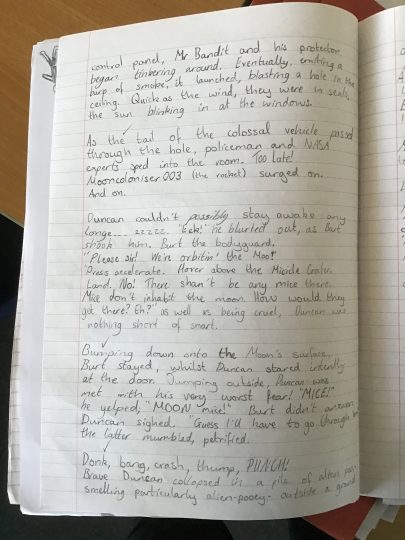 control panel, Mr Bandit and his protector
began tinkering around. Eventually, emitting a
burp of smoke, it launched, blasting a hole in the
ceiling. Quick as the wind, they were in seats,
the sun blinking in at the windows.
As the tail of the colossal vehicle passed
through the hole, policeman and NASA
experts sped into the room. Too late!
Mooncoloniser 003 (the rocket) surged on.
And on.
Duncan couldn't possibly stay awake any
longe... zzzzz. "Eek!" he blurted out, as Burt
shook him. Burt the bodyguard.
"Please sir! We're orbitin' the Moo!"
"Press accelerate. Hover above the Micicle Crater.
Land. No! There shan't be any mice there.
Mice don't inhabit the moon. How would they
get there? Eh?" as well as being cruel, Duncan was
nothing short of smart.
Bumping down onto the Moon's surface,
Burt stayed, whilst Duncan stared intently
at the door. Jumping outside, Duncan was
met with his very worst fear! "MICE!"
he yelped, "MOON mice!" Burt didn't answer.
Duncan sighed. "Guess I'll have to go through
the latter mumbled, petrified.
Donk, bang, crash, thump, PUNCH!
Brave Duncan collapsed in a pile of alien poo,
smelling particularly alien-pooey- outside a grand